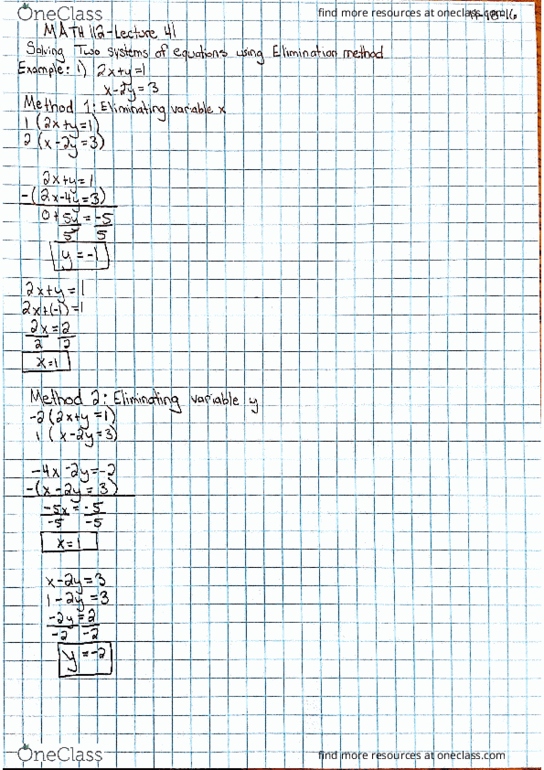 OneClass
find more resources at oneclass.com
MATH 112-Lecture 41
Solving Two systems of equations using Ellimination method
Example: 1) 2x+y=1
x-2y=3
Method 1: Eliminating variable x
1 (2x+y=1)
2 (x-2y=3)
2x+y=1
-(2x-4y=3)
0+5y=-5
5 5
y=-1
2x+y=1
2x+(-1)=1
2x=2
2 2
x=1
Method 2: Eliminating variable y
-2(2x+y=1)
1 (x-2y=3)
-4x-2y=-2
-(x-2y=3)
-5x=-5
-5 -5
x=1
x-2y=3
1-2y=3
-2y=2
-2 -2
y=-2
OneClass
find more resources at oneclass.com